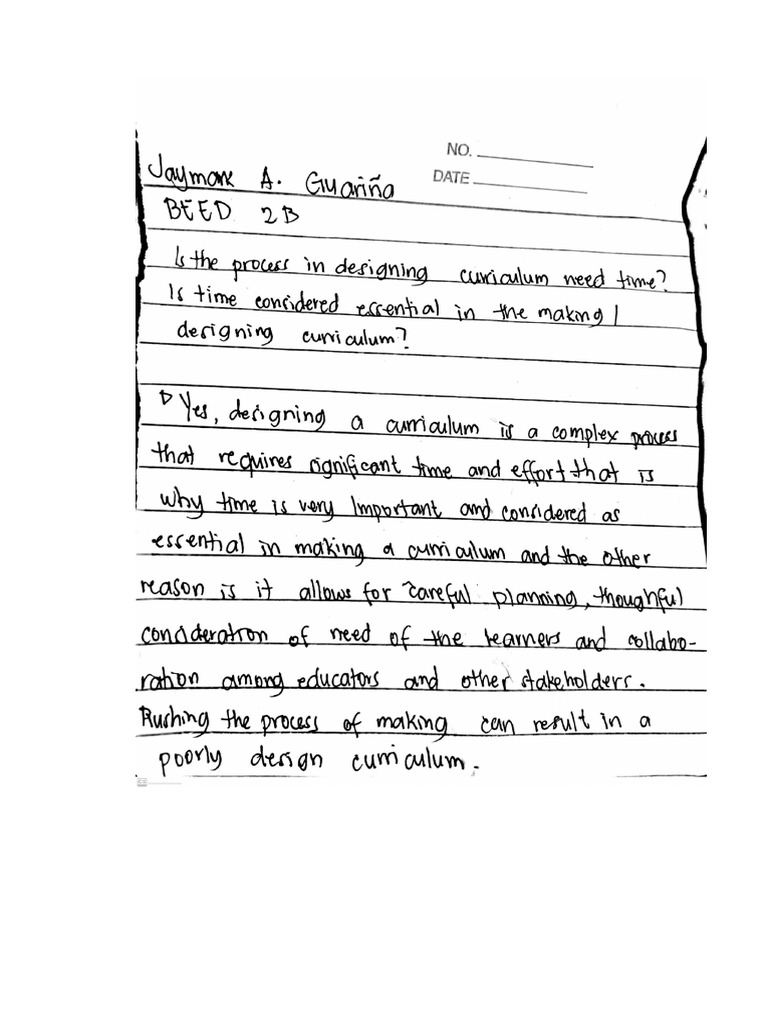 NO.
DATE
Jaymark A. Guariña
BEED 2B
Is the process in designing curriculum need time?
Is time considered essential in the making /
designing curriculum?
Yes, designing a curriculum is a complex process
that requires significant time and effort that is
why time is very important and considered as
essential in making a curriculum and the other
reason is it allows for careful planning, thoughful
consideration of need of the learners and collabo-
ration among educators and other stakeholders.
Rushing the process of making can result in a
poorly design curriculum.